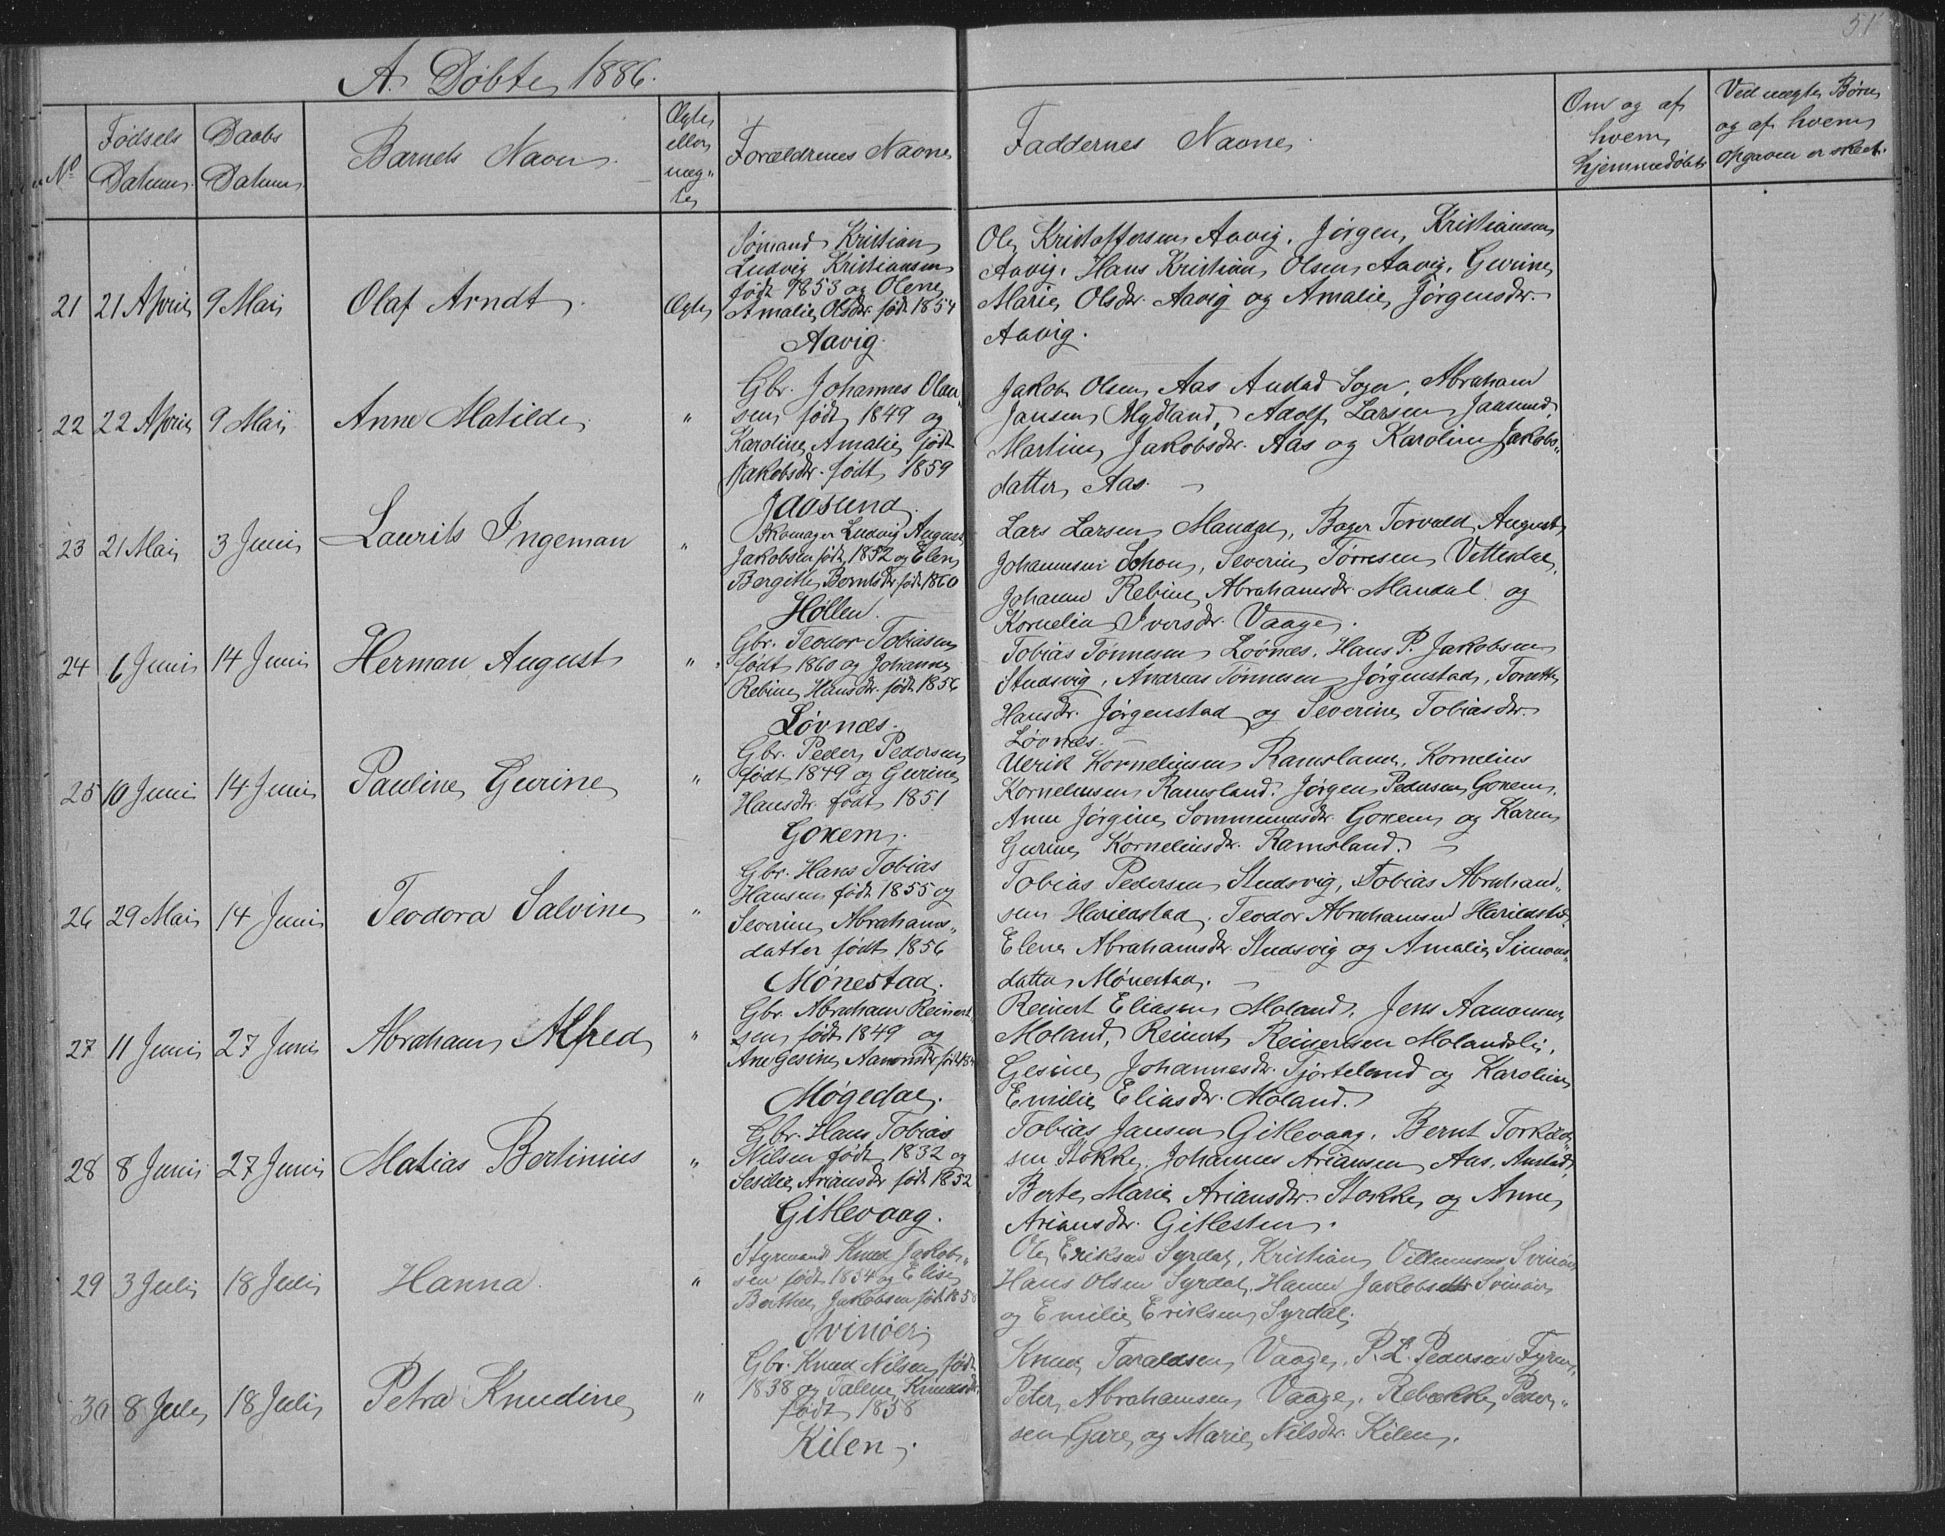 51
A. Døbte 1886.
No
Fødsels Datum.
Daabs Datum.
Barnets Navn.
Ægte eller uæg-te
Forældrenes Navne
Faddernes Navne.
Om og af hvem hjemmedøbt.
Ved uægte Børn og af hvem Opgaven er skeet.
21 21 April 9 Mai Olaf Arndt. Ægte
Sømand Kristian
Ludvig Kristiansen
født 1853 og Olene
Amalie Olsdr. født 1854
Aavig.
Ole Kristoffersen Aavig. Jørgen Kristiansen
Aavig. Hans Kristian Olsen Aavig. Gurine
Marie Olsdr. Aavig og Amalie Jørgensdr.
Aavig.
22 22 April 9 Mai Anne Matilde. "
Gbr. Johannes Olau-
sen født 1849 og
Karoline Amalie født
Jakobsdr. født 1859
Jaasund.
Jakob Olsen Aas Andad Sogn, Abraham
Jansen Mydland, Adolf Larsen Jaasund,
Martine Jakobsdr. Aas og Karoline Jakobs-
datter Aas.
23 21 Mai 3 Juni Laurits Ingeman "
Skomager Ludvig August
Jakobsen født 1852 og Elen
Bergitte Berntsdr. født 1860
Høllen.
Lars Larsen Mandal, Bager Torvald August
Johannesen Schou, Severin Tørresen Vittesdal,
Johanne Rebine Abrahamsdr. Mandal og
Kornelia Iversdr. Vaage.
24 6 Juni 14 Juni Herman August "
Gbr. Teodor Tobiasen
født 1860 og Johanne
Rebine Hansdr. født 1856
Løvnæs.
Tobias Tønnesen Løvnæs. Hans P. Jakobsen
Studsvig, Andreas Tønnesen Jørgenstad, Tonette
Hansdr. Jørgenstad og Severine Tobiasdr.
Løvnæs.
25 10 Juni 14 Juni Pauline Gurine "
Gbr. Peder Pedersen
født 1849 og Gurine
Hansdr. født 1851
Goxem.
Ulrik Korneliusen Ramsland, Kornelius
Korneliusen Ramsland. Jørgen Pedersen Goxem.
Anne Jørgine Sommenusdr. Goxem og Karen
Gurine Korneliusdr. Ramsland.
26 29 Mai 14 Juni Teodora Salvine "
Gbr. Hans Tobias
Hansen født 1855 og
Severine Abrahams-
datter født 1856
Mønestad.
Tobias Pedersen Studsvig, Tobias Abraham-
sen Harildstad. Teodor Abrahamsen Harildstad
Elene Abrahamsdr. Studsvig og Amalie Simons-
datter Mønestad.
27 11 Juni 27 Juni Abraham Alfred "
Gbr. Abraham Reinert-
sen født 1849 og
Ane Gesine Aanonsdr. født
Møgedal.
Reinert Eliasen Moland. Jens Aanonsen
Moland, Reinert Reinertsen Molandsli,
Gesine Johannesdr. Tjorteland og Karoline
Emilie Eliasdr. Moland.
28 8 Juni 27 Juni Matias Bertinius "
Gbr. Hans Tobias
Nilsen født 1832 og
Seselie Ariansdr født 1852
Gitlevaag.
Tobias Jansen Gitlevaag. Bernt Torkild-
sen Stokke. Johannes Ariansen Aas, Austad,
Berte Marie Ariansdr. Stokke og Anne
Ariansdr. Gitlesten.
29 3 Juli 18 Juli Hanna. "
Styrmand Knud Jakob-
sen født 1854 og Elise
Berthe Jakobsen født 1858
Svinøer.
Ole Eriksen Syrdal, Kristian Villumsen Svinør
Hans Olsen Syrdal. Hanne Jakobsdtr Svinør
og Emilie Eriksen Syrdal.
30 8 Juli 18 Juli Petra Knudine "
Gbr. Knud Nilsen født
1838 og Talene Knudsdr.
født 1838
Kilen.
Knud Taraldsen Vaage, P. L. Pedersen Fyren,
Peter Abrahamsen Vaage. Rebekke Peder-
sen Gare og Marie Nilsdr. Kilen.